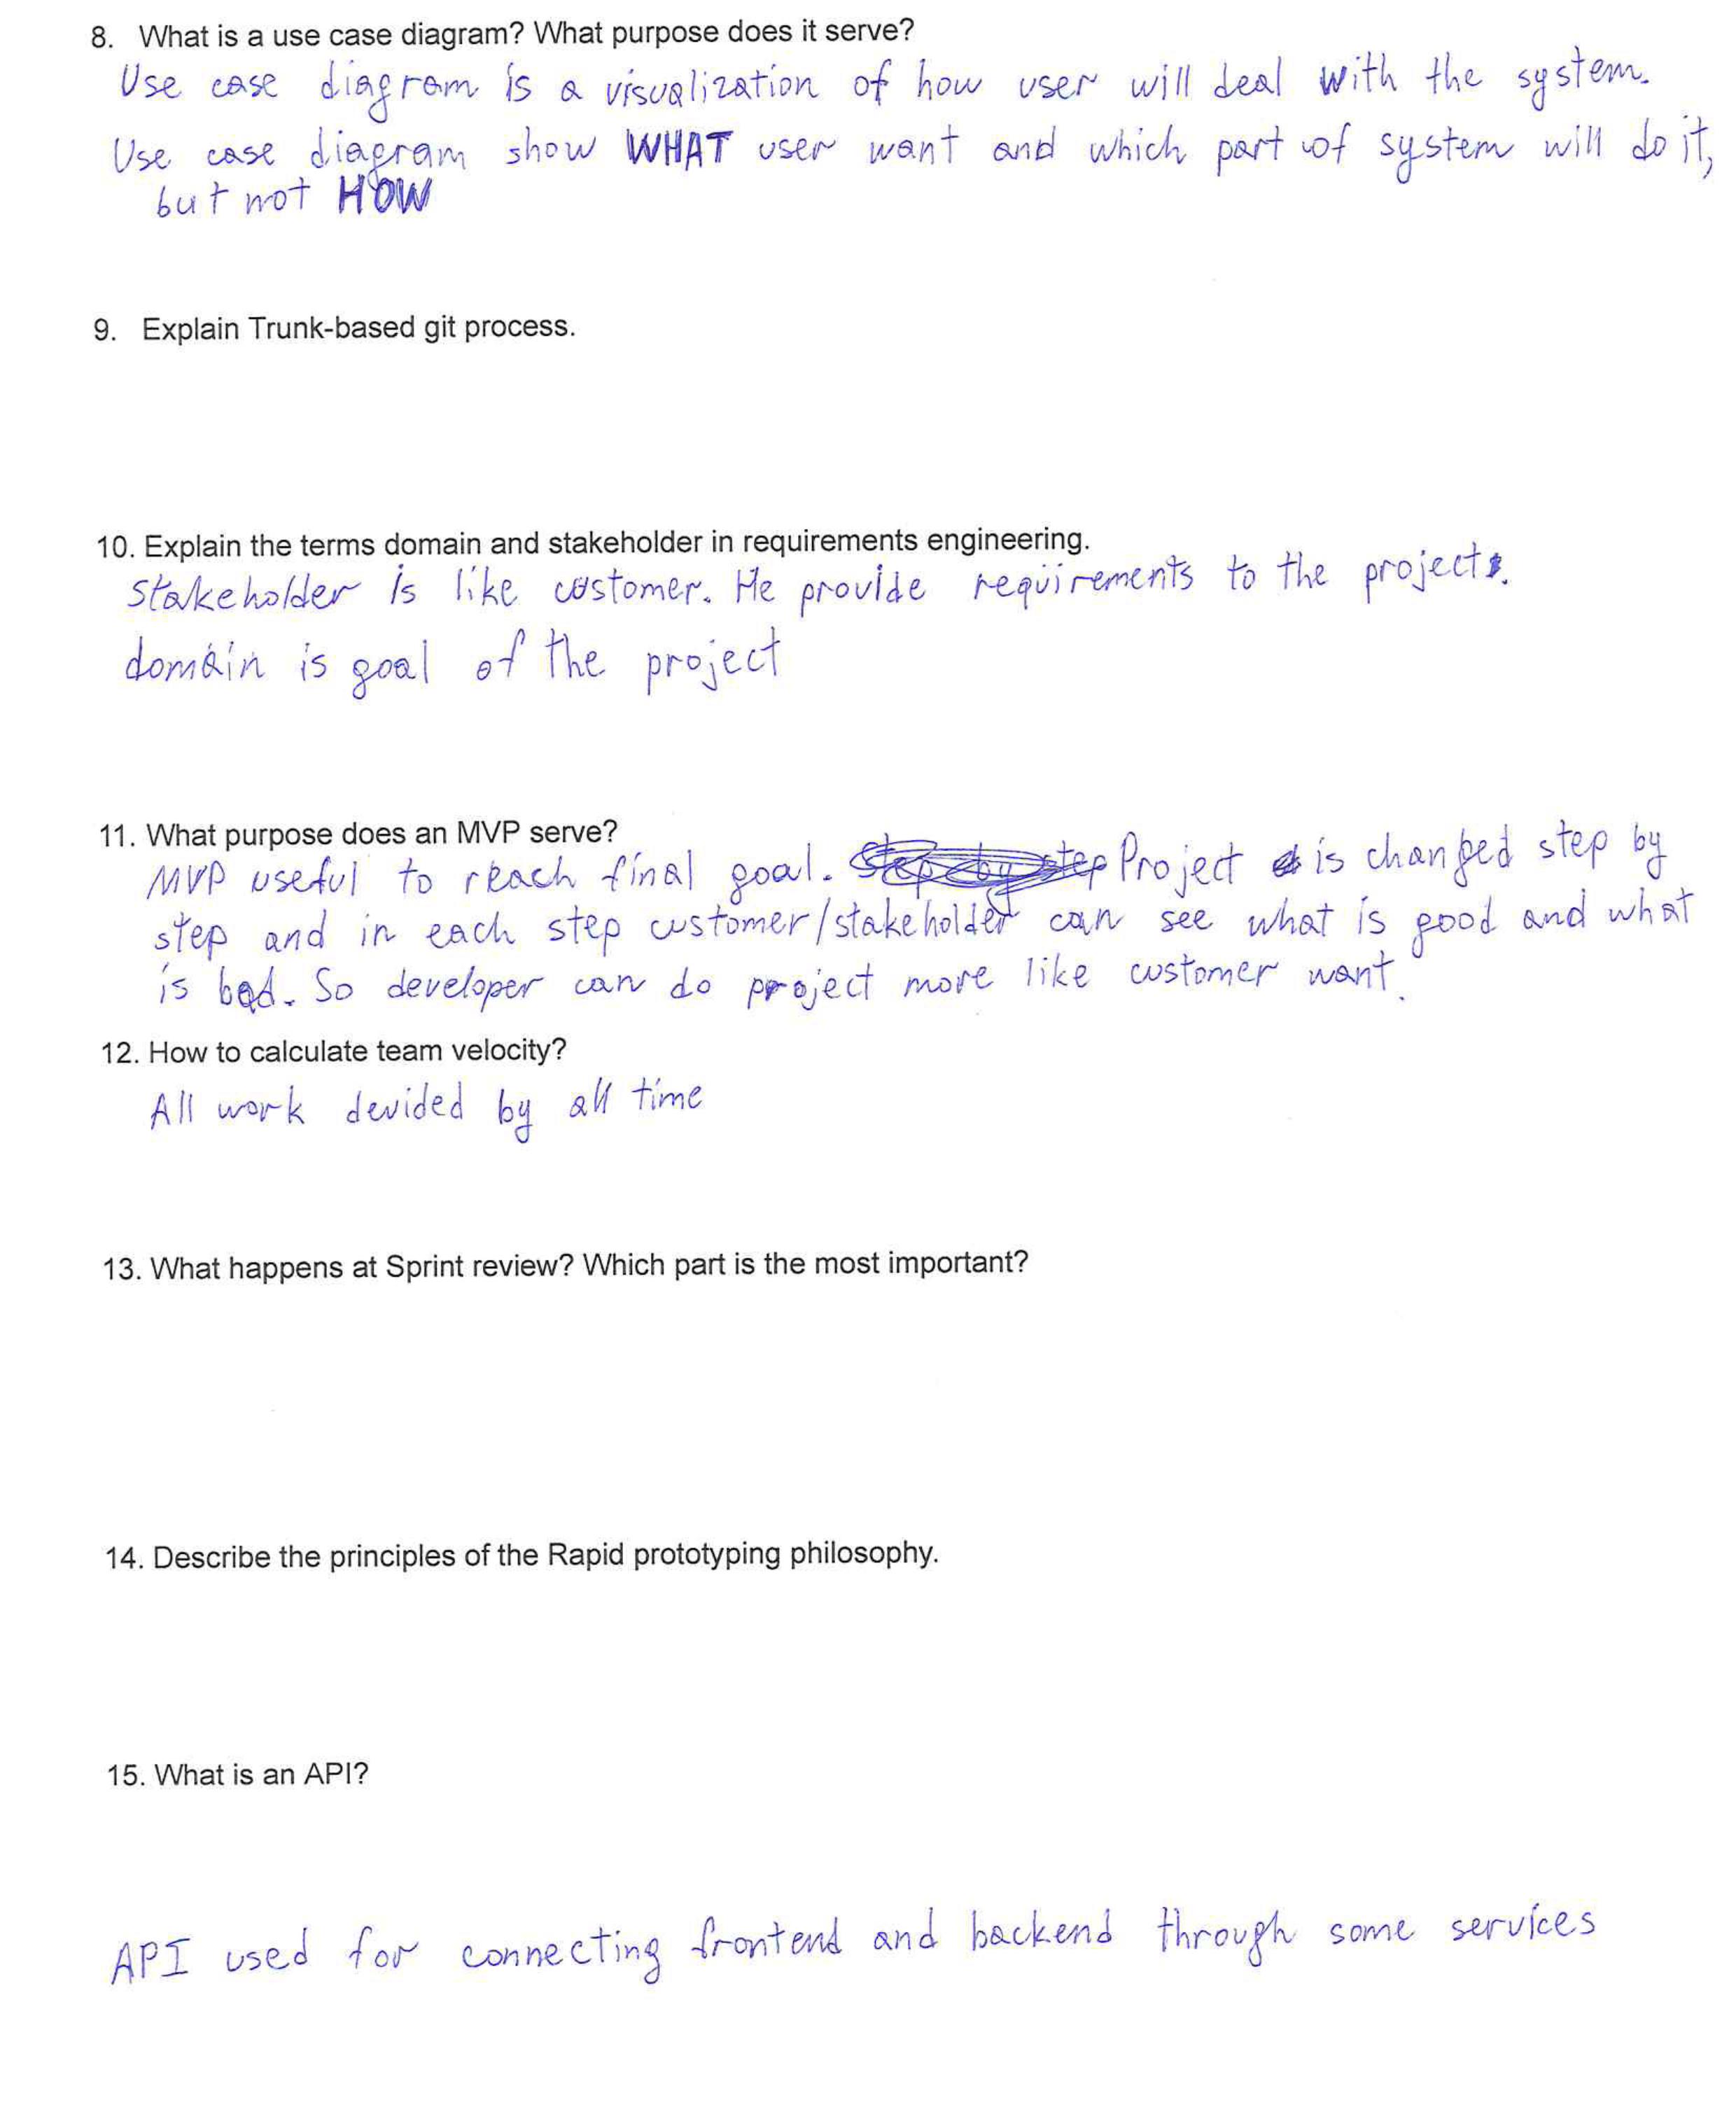 8. What is a use case diagram? What purpose does it serve?
Use case diagram is a visualization of how user will deal with the system.
Use case diagram show WHAT user want and which part of system will do it,
but not HOW
9. Explain Trunk-based git process.
10. Explain the terms domain and stakeholder in requirements engineering.
stakeholder is like customer. He provide requirements to the project.
domain is goal of the project
11. What purpose does an MVP serve?
MVP useful to reach final goal. Step by step Project is changed step by
step and in each step customer/stakeholder can see what is good and what
is bad. So developer can do project more like customer want.
12. How to calculate team velocity?
All work devided by all time
13. What happens at Sprint review? Which part is the most important?
14. Describe the principles of the Rapid prototyping philosophy.
15. What is an API?
API used for connecting frontend and backend through some services